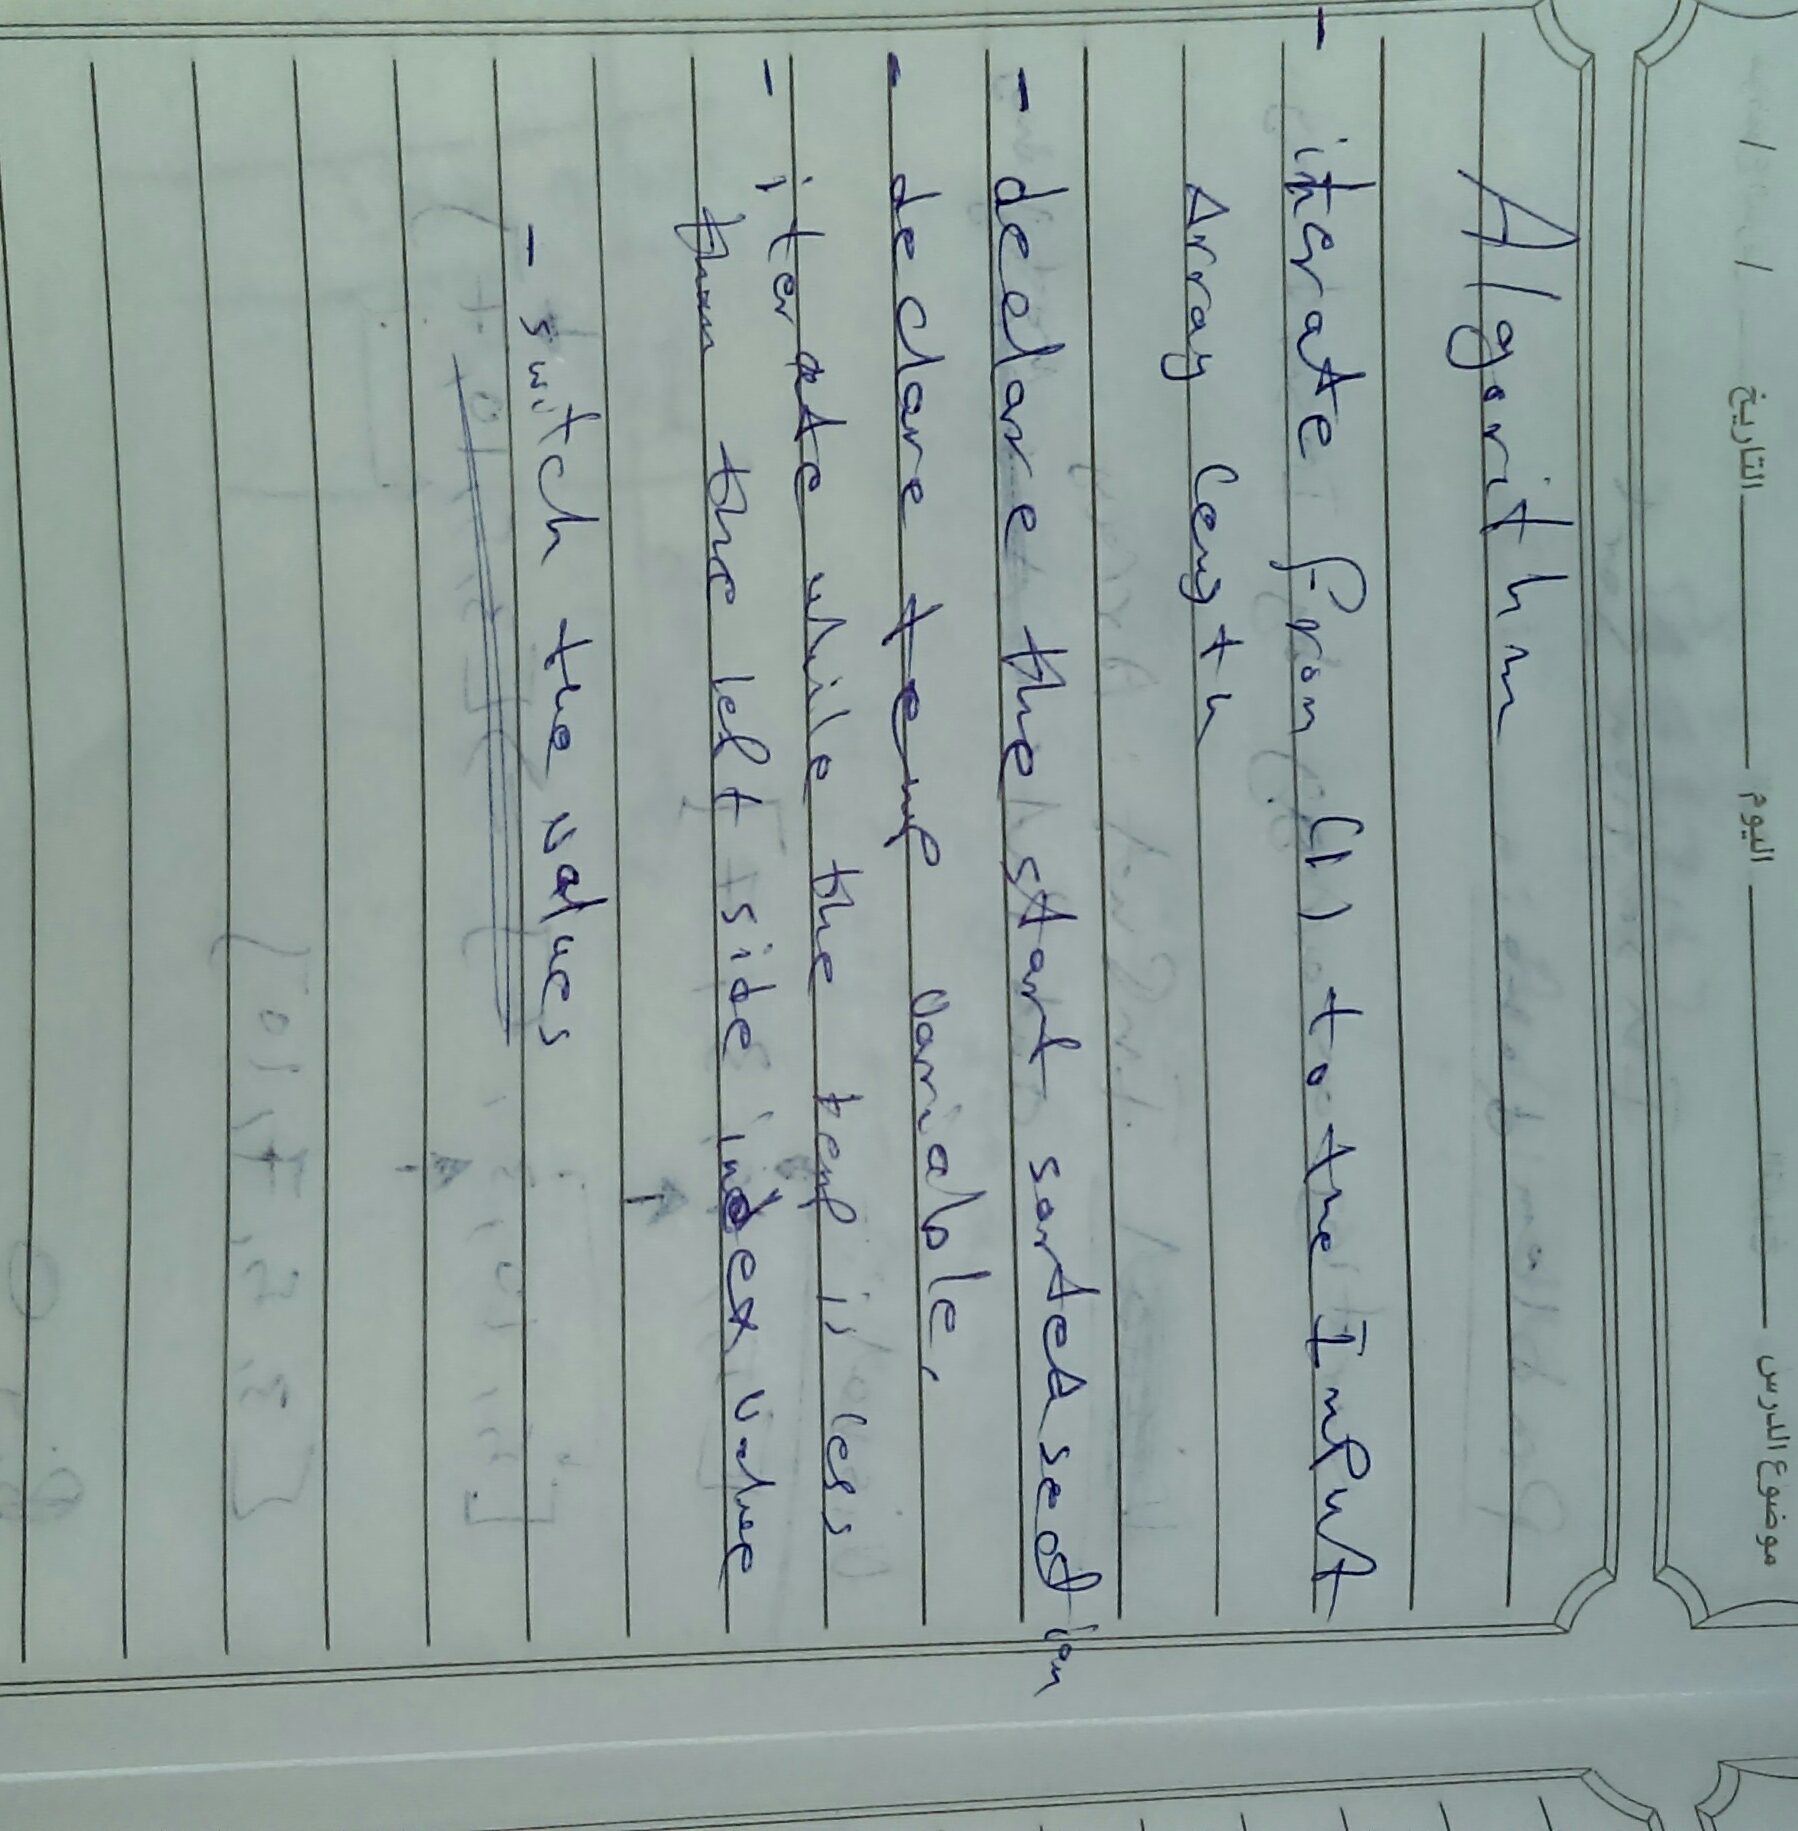 التاريخ اليوم موضوع الدرس
Algorithm
- iterate from (1) to the Input
Array length
- declare the start sorted section
- declare temp variable.
- iterate while the temp is less
than the left side index value
- switch the values